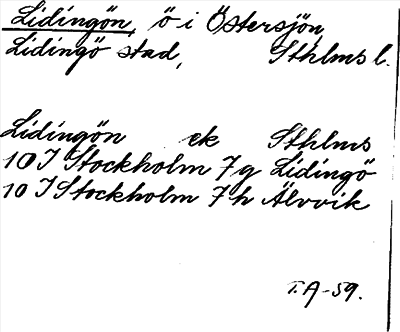 Lidingön, ö i Östersjön
Lidingö stad, Sthlms l.
Lidingön ek Sthlms
10 I Stockholm 7g Lidingö
10 I Stockholm 7h Älvvik
T.A-59.